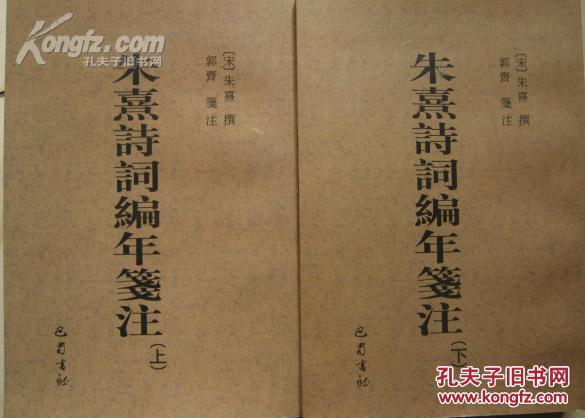 Kongfz.com
孔夫子旧书网
朱熹詩詞編年箋注(上)
〔宋〕朱熹 撰
郭齊 箋注
巴蜀書社
朱熹詩詞編年箋注(下)
〔宋〕朱熹 撰
郭齊 箋注
巴蜀書社
孔夫子旧书网
www.kongfz.com